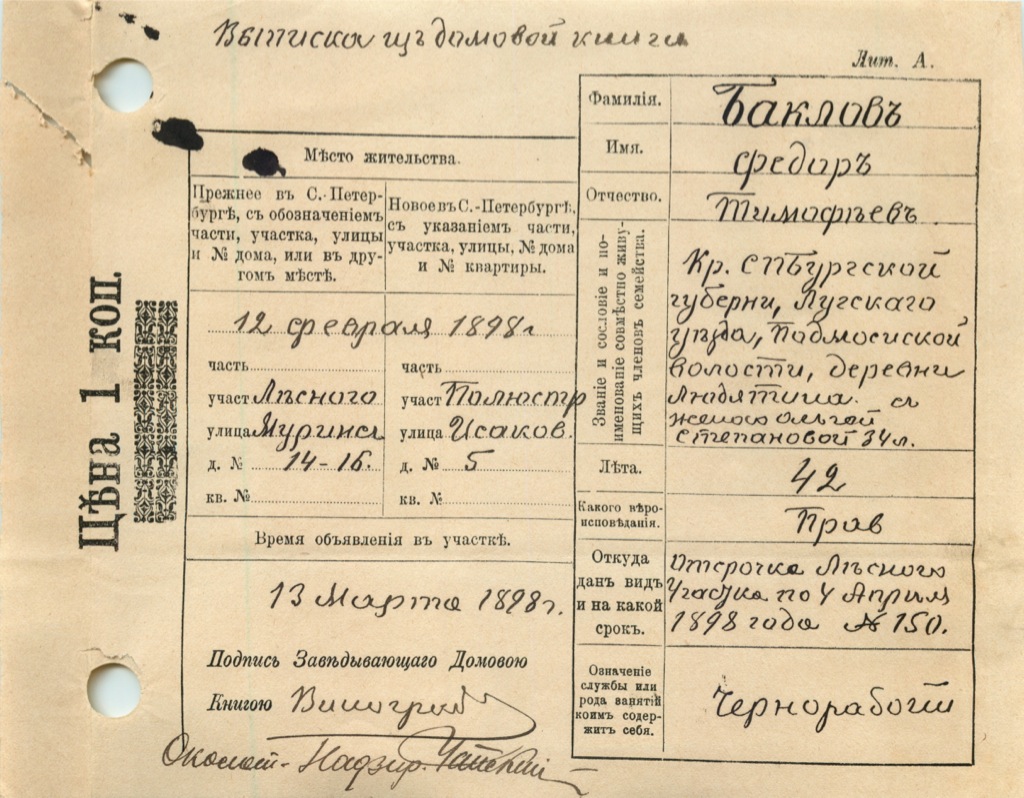 Выписка изъ домовой книги
Лит. А.
Цѣна 1 коп.
Мѣсто жительства.
Прежнее въ С.-Петер-
бургѣ, съ обозначеніемъ
части, участка, улицы
и № дома, или въ дру-
гомъ мѣстѣ.
Новое въ С.-Петербургѣ,
съ указаніемъ части,
участка, улицы, № дома
и № квартиры.
12 февраля 1898 г
часть
участ Лѣсного
улица Муринск
д. № 14-16.
кв. №
часть
участ Полюстр
улица Исаков.
д. № 5
кв. №
Время объявленія въ участкѣ.
13 Марта 1898 г.
Подпись Завѣдывающаго Домовою
Книгою Виноград
Околот. Надзир.
Фамилія. Бакловъ
Имя. Федоръ
Отчество. Тимофѣевъ
Званіе и сословіе и по-
именованіе совмѣстно живу-
щихъ членовъ семейства.
Кр. СПбургской
губерни, Лугскаго
уѣзда,
волости, деревни
Людятина съ
женою Ольгой
Степановой 34 л.
Лѣта. 42
Какого вѣро-
исповѣданія.
Прав
Откуда
данъ видъ
и на какой
срокъ.
Отсрочка Лѣсного
Участка по 4 Апреля
1898 года № 150.
Означеніе
службы или
рода занятій
коимъ содер-
житъ себя.
Чернорабогій